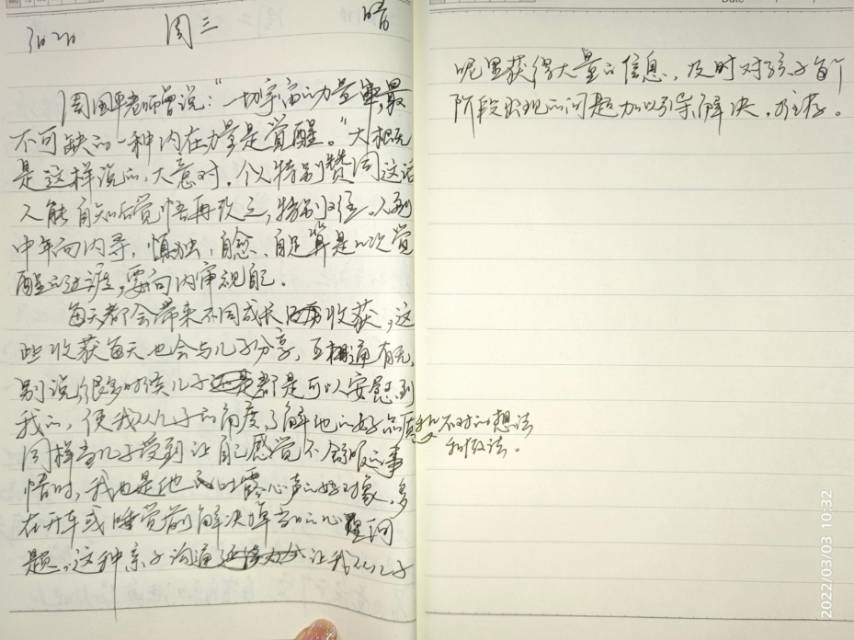 3月2日 周三 晴
周国平老师曾说：“一切宇宙的力量中，最
不可缺的一种内在力量是觉醒。”大概就
是这样说的，大意对，个人特别赞同这话
人能自知后觉悟再改之，特别难。人到
中年向内寻，慎独，自愈、自足算是一次觉
醒的过渡，要向内审视自己。
每天都会带来不同成长 收获，这
些收获每天也会与儿子分享，互相通有无，
别说很多时候儿子还是都是可以安慰到
我的，使我从儿子的角度了解他的好品质和 不对的想法
和做法。
同样当儿子受到让自己感觉不舒服的事
情时，我也是他 吐露心声的好对象，多
在开车或睡觉前解决掉当时的心理问
题。这种亲子沟通 让我从儿子
呢里获得大量的信息，及时对孩子每个
阶段出现的问题加以引导解决，
2022/03/03 10:32